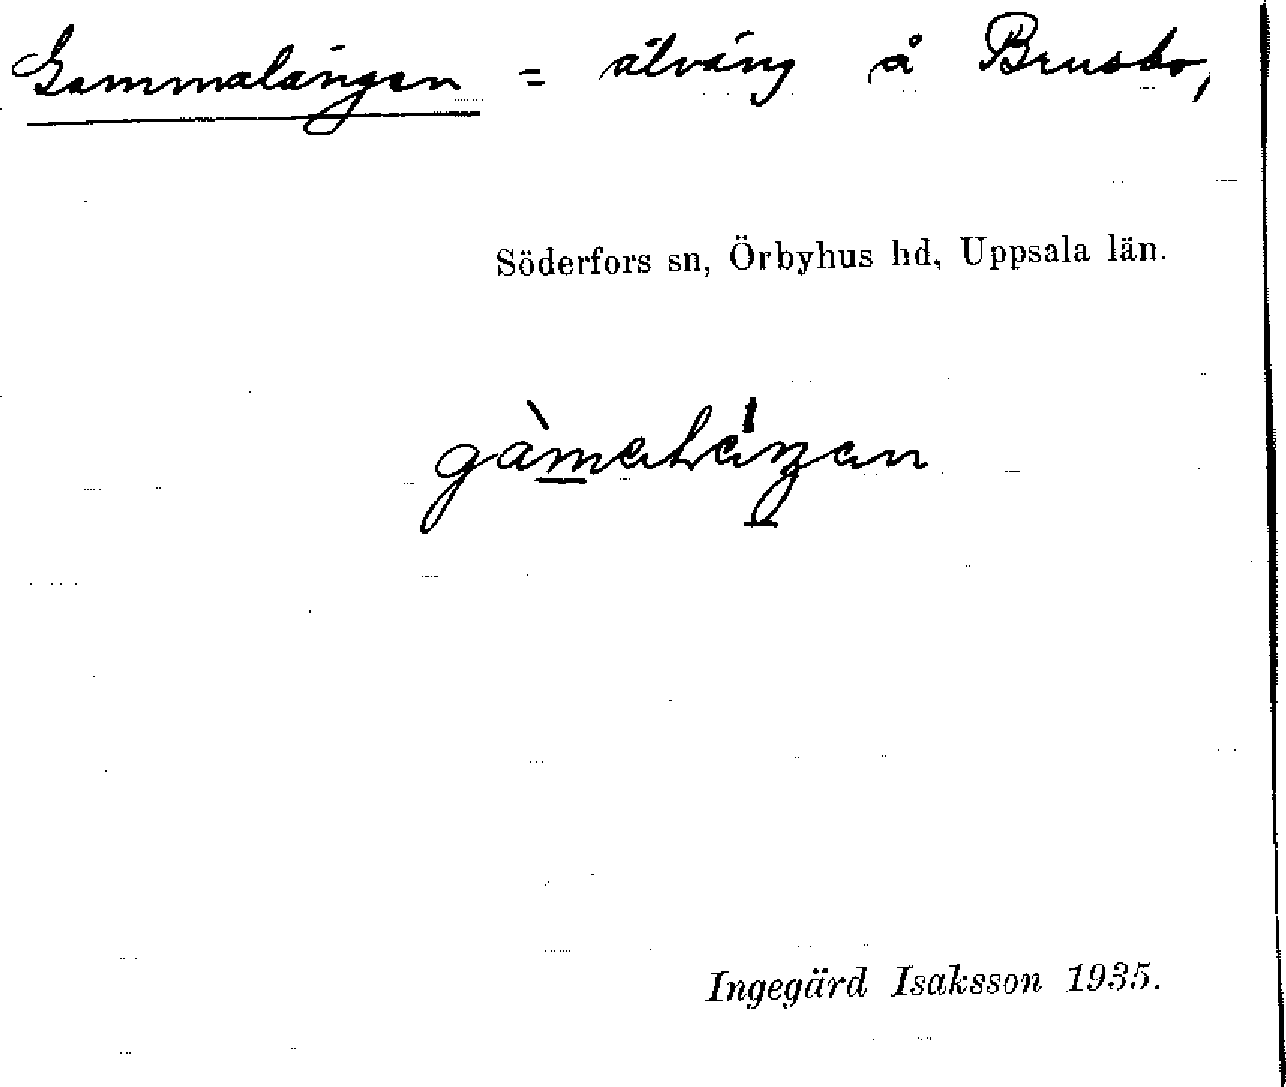 Gammalängen = älväng å Brusbo,
Söderfors sn, Örbyhus hd, Uppsala län.
Ingegärd Isaksson 1935.